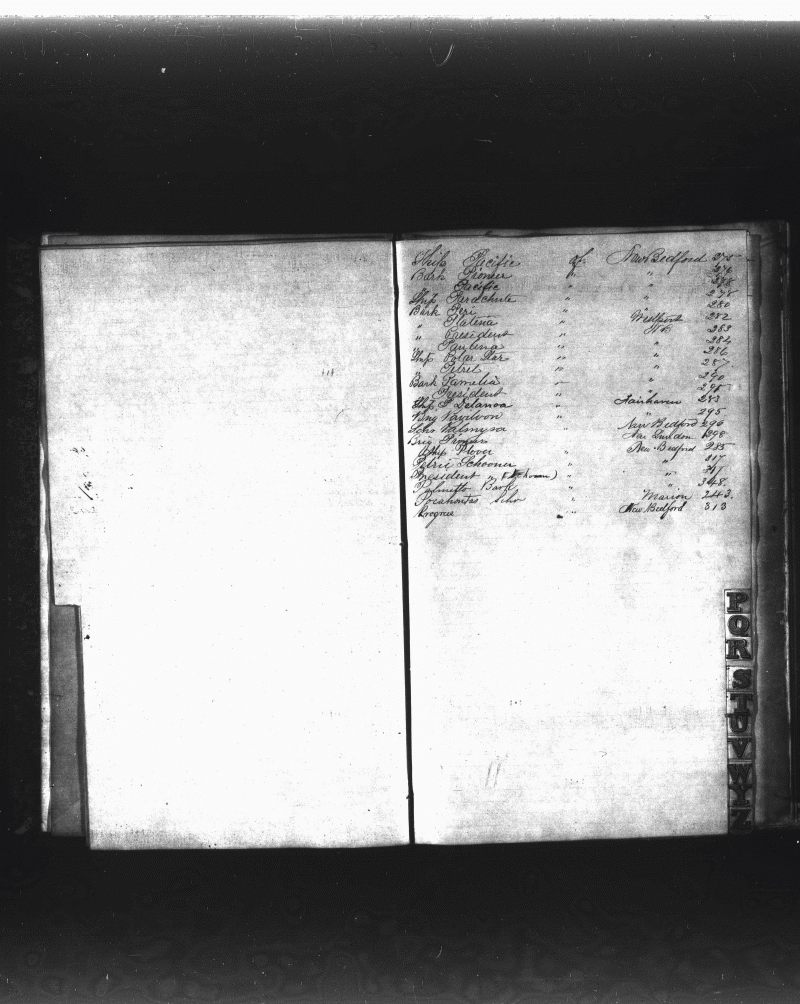 Ship Pacific of New Bedford 275
Bark Pioneer " " 276
Pacific " " 278
Ship Parachute " " 278
Bark Peri " " 280
" Platina " Westport 282
" President " N B 263
" Paulina " " 284
Ship Polar Star " " 286
" Petrel " " 287
Bark Pamelia " " 290
" President " " 298
Ship P Delanoa " Fairhaven 283
Brig Pavilion " " 295
Schr Palmyra " New Bedford 296
Brig Pioneer " New London 298
Ship Plover " New Bedford 235
Petrel Schooner " " 317
President " " "
Palmetto Bark " " 348
Pocahontas Schr " Marion 243
Progress " New Bedford 313
P
Q
R
S
T
U
V
W
Y
Z